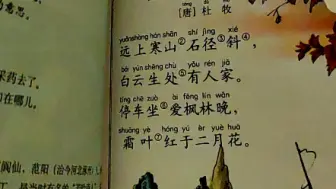 意思。
[唐] 杜牧
yuǎn shàng hán shān shí jìng xié
远上寒山②石径③斜④,
bái yún shēng chù yǒu rén jiā
白云生处⑤有人家。
采药去了。
在哪儿。
tíng chē zuò ài fēng lín wǎn
停车坐⑥爱枫林晚,
shuāng yè hóng yú èr yuè huā
霜叶⑦红于二月花。
阆仙,范阳(治今河北